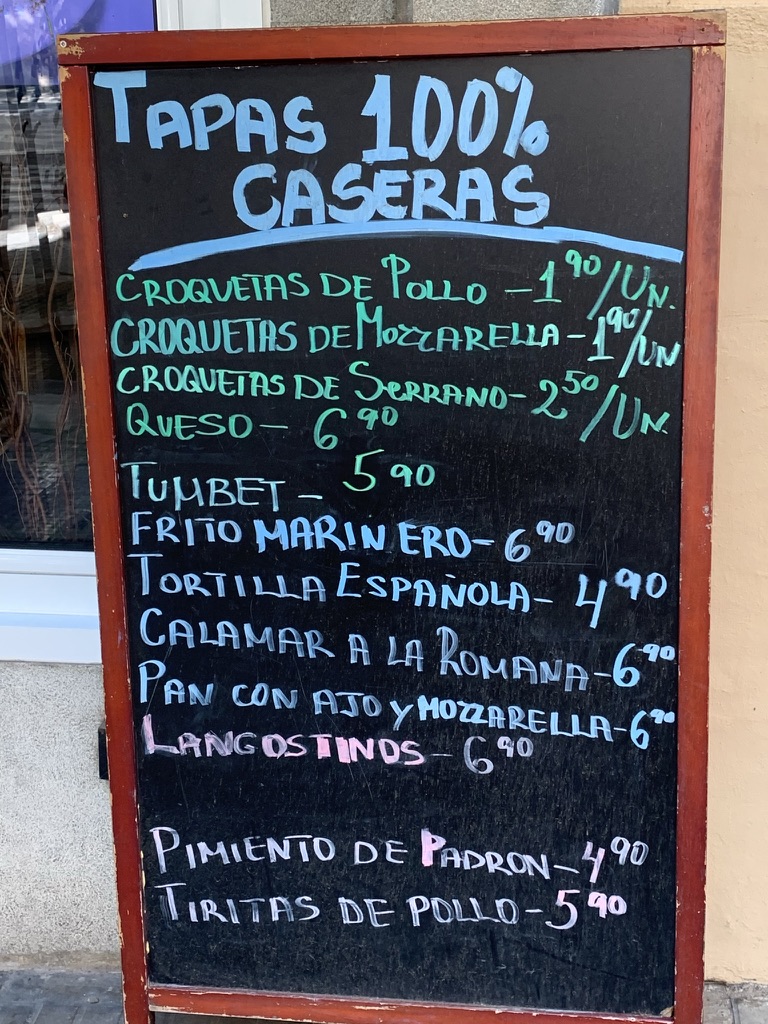 TAPAS 100%
CASERAS
CROQUETAS DE POLLO - 1.90/UN.
CROQUETAS DE MOZZARELLA - 1.90/UN
CROQUETAS DE SERRANO - 2.50/UN.
QUESO - 6.90
TUMBET - 5.90
FRITO MARINERO - 6.90
TORTILLA ESPAÑOLA - 4.90
CALAMAR A LA ROMANA - 6.90
PAN CON AJO Y MOZZARELLA - 6.90
LANGOSTINOS - 6.90
PIMIENTO DE PADRON - 4.90
TIRITAS DE POLLO - 5.90